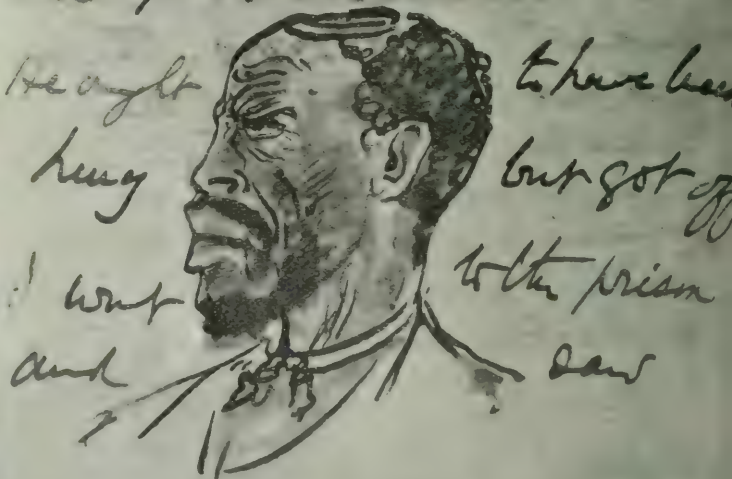 He ought to have been
hung but got off
I went to the prison
and saw